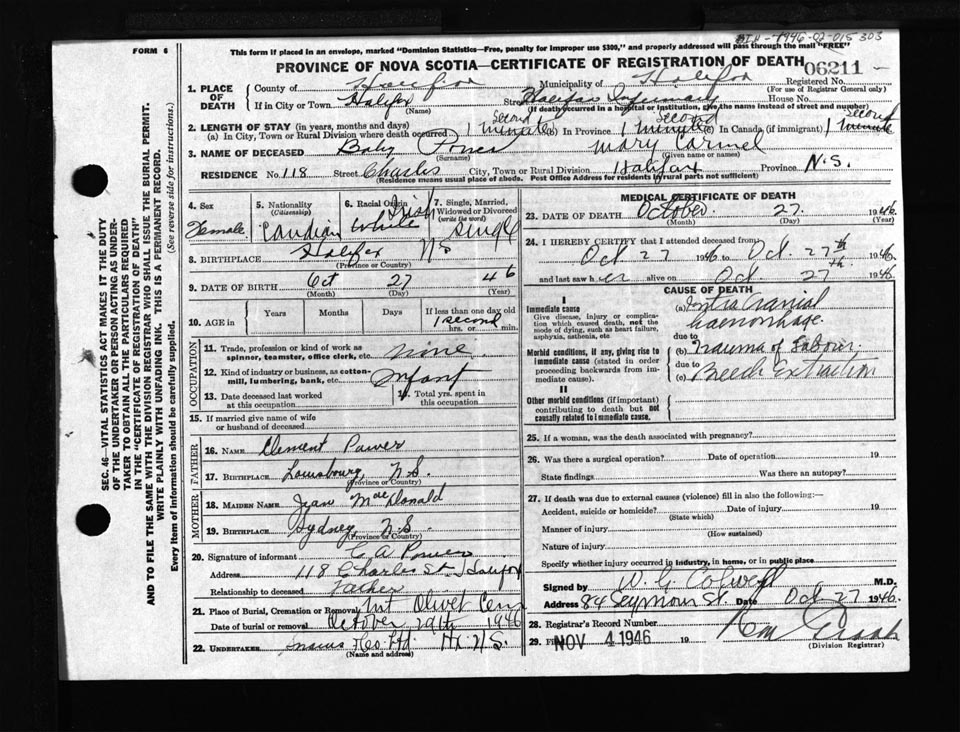 BIH-1946-02-015303
FORM 6
This form if placed in an envelope, marked "Dominion Statistics—Free, penalty for improper use $300," and properly addressed will pass through the mail "FREE"
PROVINCE OF NOVA SCOTIA—CERTIFICATE OF REGISTRATION OF DEATH
06211
1. PLACE OF DEATH County of Halifax Municipality of Halifax Registered No.
(For use of Registrar General only)
If in City or Town Halifax Street Halifax Infirmary House No.
(Name) (If death occurred in a hospital or institution, give the name instead of street and number)
2. LENGTH OF STAY (in years, months and days)
(a) In City, Town or Rural Division where death occurred 1 minute Second (b) In Province 1 minute Second (c) In Canada (if immigrant) 1 minute Second
3. NAME OF DECEASED Baby Power Mary Carmel
(Surname) (Given name or names)
RESIDENCE No. 118 Street Charles City, Town or Rural Division Halifax Province N.S.
(Residence means usual place of abode. Post Office Address for residents of rural parts not sufficient)
4. Sex Female
5. Nationality (Citizenship) Candian
6. Racial Origin Irish White
7. Single, Married, Widowed or Divorced (write the word) Single
8. BIRTHPLACE Halifax NS
(Province or Country)
9. DATE OF BIRTH Oct 27 46
(Month) (Day) (Year)
10. AGE in Years Months Days If less than one day old
1 second
hrs. or min.
OCCUPATION
11. Trade, profession or kind of work as spinner, teamster, office clerk, etc. none
12. Kind of industry or business, as cotton-mill, lumbering, bank, etc. Infant
13. Date deceased last worked at this occupation
14. Total yrs. spent in this occupation
15. If married give name of wife or husband of deceased
FATHER
16. NAME Clement Power
17. BIRTHPLACE Louisbourg N.S.
(Province or Country)
MOTHER
18. MAIDEN NAME Jean MacDonald
19. BIRTHPLACE Sydney N.S.
(Province or Country)
20. Signature of informant C A Power
Address 118 Charles St Halifax
Relationship to deceased Father
21. Place of Burial, Cremation or Removal Mt Olivet Cem
Date of burial or removal October 29th 1946
22. UNDERTAKER Snows & Co Ltd Hx N.S.
(Name and address)
MEDICAL CERTIFICATE OF DEATH
23. DATE OF DEATH October 27 1946
(Month) (Day) (Year)
24. I HEREBY CERTIFY that I attended deceased from:
Oct 27 1946 to Oct. 27th 1946
and last saw her alive on Oct 27th 1946
CAUSE OF DEATH
I
Immediate cause
Give disease, injury or complication which caused death, not the mode of dying, such as heart failure, asphyxia, asthenia, etc.
(a) Intra Cranial haemorrhage
due to
Morbid conditions, if any, giving rise to immediate cause (stated in order proceeding backwards from immediate cause).
(b) Trauma of Labour
due to
(c) Breech Extraction
II
Other morbid conditions (if important) contributing to death but not causally related to immediate cause.
25. If a woman, was the death associated with pregnancy?
26. Was there a surgical operation? Date of operation 19
State findings Was there an autopsy?
27. If death was due to external causes (violence) fill in also the following:—
Accident, suicide or homicide? Date of injury 19
(State which)
Manner of injury
(How sustained)
Nature of injury
Specify whether injury occurred in industry, in home, or in public place
Signed by W. G. Colwell M.D.
Address 84 Seymour St. Date Oct 27 1946
28. Registrar's Record Number
29. Fi NOV 4 1946 19
(Division Registrar)
SEC. 46—VITAL STATISTICS ACT MAKES IT THE DUTY
OF THE UNDERTAKER OR PERSON ACTING AS UNDER-
TAKER TO OBTAIN ALL THE PARTICULARS REQUIRED
IN THE "CERTIFICATE OF REGISTRATION OF DEATH"
AND TO FILE THE SAME WITH THE DIVISION REGISTRAR WHO SHALL ISSUE THE BURIAL PERMIT.
WRITE PLAINLY WITH UNFADING INK. THIS IS A PERMANENT RECORD.
Every item of information should be carefully supplied. (See reverse side for instructions.)